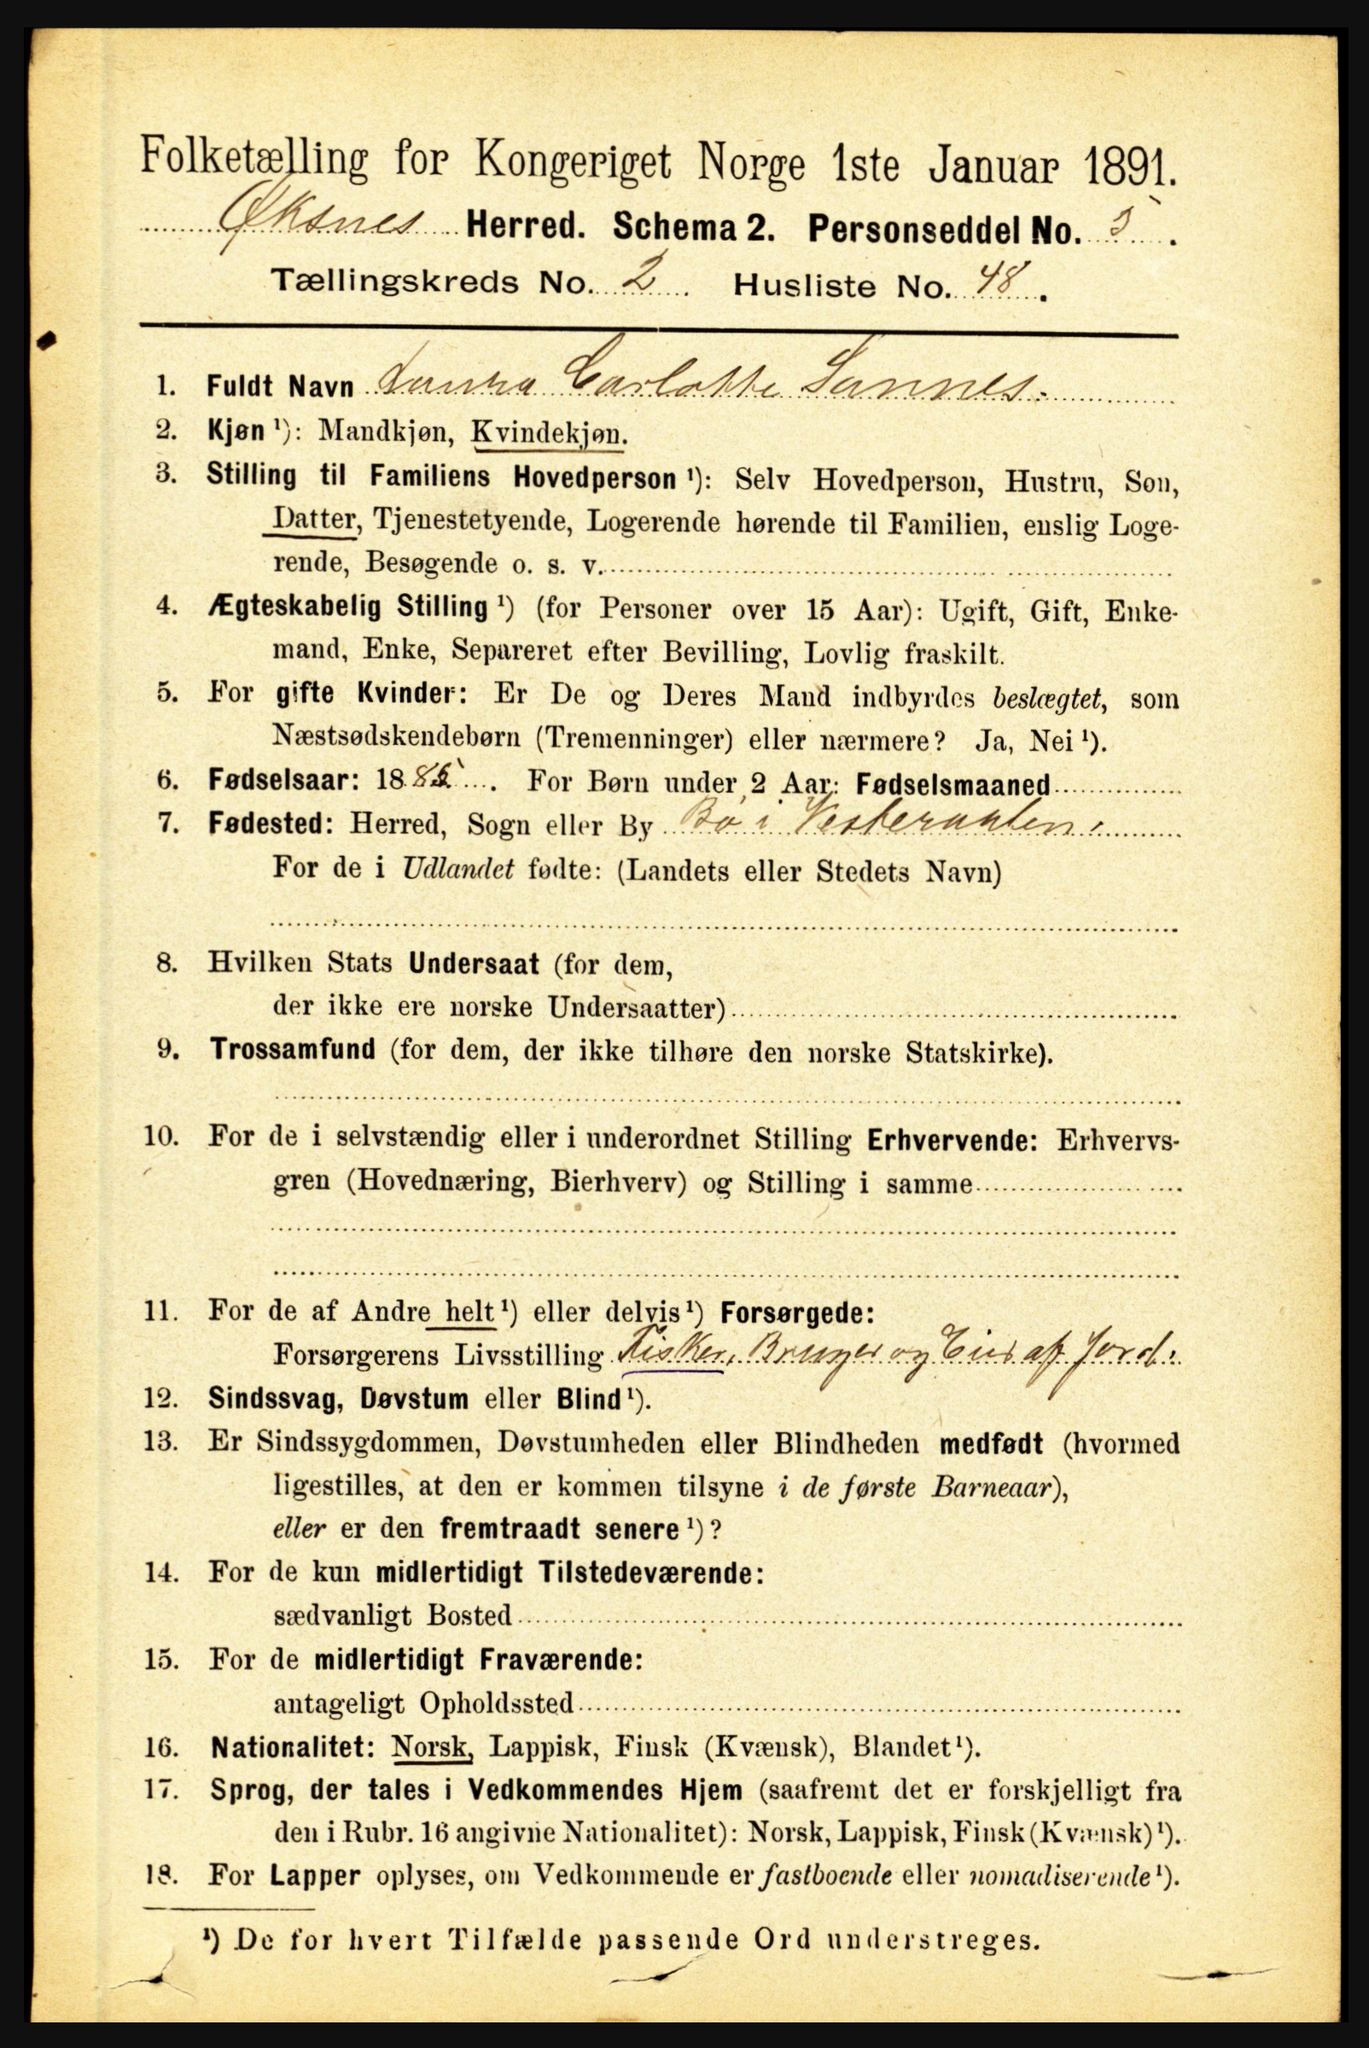 Folketælling for Kongeriget Norge 1ste Januar 1891.
Øksnes Herred. Schema 2. Personseddel No. 5.
Tællingskreds No. 2 Husliste No. 48.
1. Fuldt Navn Laura Carlotte Sannes.
2. Kjøn ¹): Mandkjøn, Kvindekjøn.
3. Stilling til Familiens Hovedperson ¹): Selv Hovedperson, Hustru, Søn,
Datter, Tjenestetyende, Logerende hørende til Familien, enslig Loge-
rende, Besøgende o. s. v.
4. Ægteskabelig Stilling ¹) (for Personer over 15 Aar): Ugift, Gift, Enke-
mand, Enke, Separeret efter Bevilling, Lovlig fraskilt.
5. For gifte Kvinder: Er De og Deres Mand indbyrdes beslægtet, som
Næstsødskendebørn (Tremenninger) eller nærmere? Ja, Nei ¹).
6. Fødselsaar: 1885. For Børn under 2 Aar: Fødselsmaaned
7. Fødested: Herred, Sogn eller By Bø i Vesteraalen.
For de i Udlandet fødte: (Landets eller Stedets Navn)
8. Hvilken Stats Undersaat (for dem,
der ikke ere norske Undersaatter)
9. Trossamfund (for dem, der ikke tilhøre den norske Statskirke).
10. For de i selvstændig eller i underordnet Stilling Erhvervende: Erhvervs-
gren (Hovednæring, Bierhverv) og Stilling i samme
11. For de af Andre helt ¹) eller delvis ¹) Forsørgede:
Forsørgerens Livsstilling Fisker, Bruger og Eier af Jord.
12. Sindssvag, Døvstum eller Blind ¹).
13. Er Sindssygdommen, Døvstumheden eller Blindheden medfødt (hvormed
ligestilles, at den er kommen tilsyne i de første Barneaar),
eller er den fremtraadt senere ¹)?
14. For de kun midlertidigt Tilstedeværende:
sædvanligt Bosted
15. For de midlertidigt Fraværende:
antageligt Opholdssted
16. Nationalitet: Norsk, Lappisk, Finsk (Kvænsk), Blandet ¹).
17. Sprog, der tales i Vedkommendes Hjem (saafremt det er forskjelligt fra
den i Rubr. 16 angivne Nationalitet): Norsk, Lappisk, Finsk (Kvænsk) ¹).
18. For Lapper oplyses, om Vedkommende er fastboende eller nomadiserende ¹).
¹) De for hvert Tilfælde passende Ord understreges.